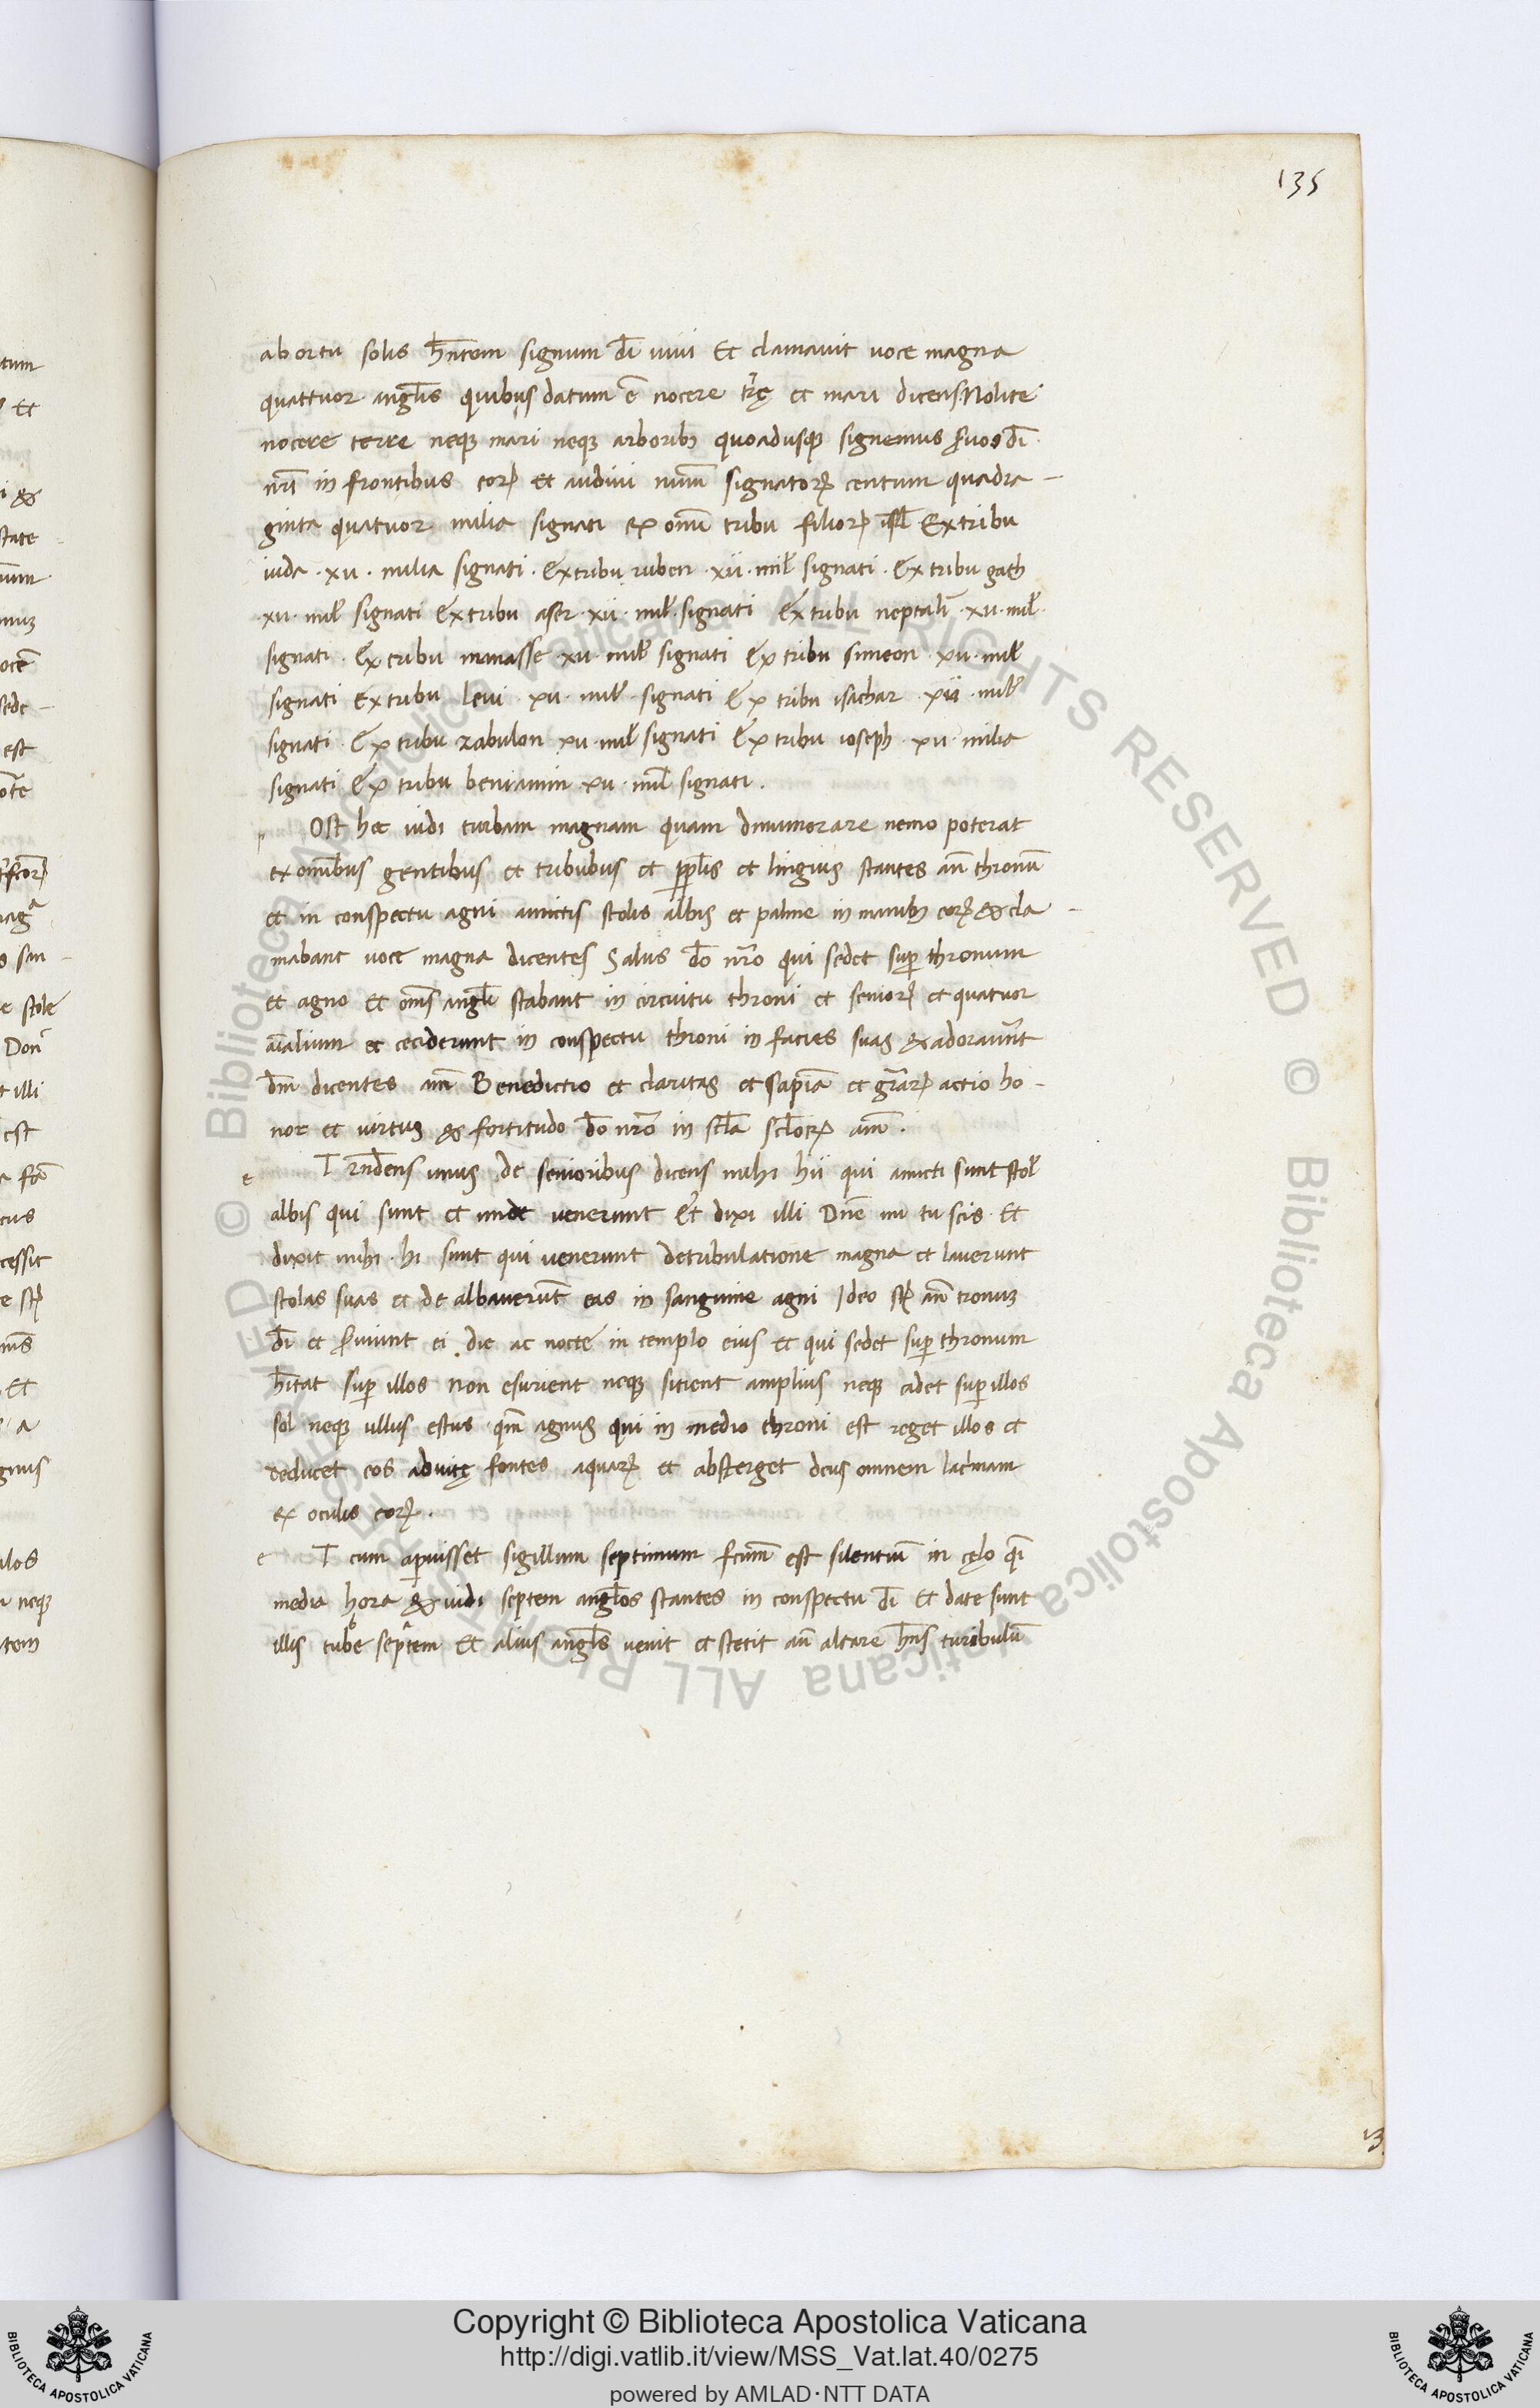 135
ab ortu solis hn̄tem signum dī uiui Et clamauit uoce magna
quattuor angl̄is quibus datum ē nocere tr̄rę et mari dicens Nolite
nocere terre neqꝫ mari neqꝫ arboribꝫ quoadusqꝫ signemus s̄uos dī
nr̄i in frontibus eoꝝ et audiui num̄ signatoꝝ centum quadra-
ginta quatuor milia signati ex omn̄i tribu filioꝝ isr̄l Ex tribu
iuda · xii · milia signati · Ex tribu ruben · xii · mil̄ signati · Ex tribu gath
xii · mil̄ signati Ex tribu aser · xii · mil̄ · signati Ex tribu neptalī · xii · mil̄
signati · Ex tribu manasse · xii · mil̄ signati Ex tribu simeon · xii · mil̄
signati Ex tribu leui · xii · mil̄ · signati Ex tribu isachar · xii · mil̄
signati · Ex tribu zabulon xii · mil̄ signati Ex tribu ioseph · xii · milia
signati Ex tribu beniamin xii · mil̄ signati ·
p Ost hec uidi turbam magnam quam dinumerare nemo poterat
ex omn̄ibus gentibus et tribubus et ppl̄is et linguis stantes an̄ thronū
et in conspectu agni amictis stolis albis et palme in manibꝫ eoꝝ & cla-
mabant uoce magna dicentes Salus dō nr̄o qui sedet suꝑ thronum
et agno Et omn̄s angl̄i stabant in circuitu throni et senioꝝ et quatuor
aīalium et ceciderunt in conspectu throni in facies suas & adorauer̄t
dm̄ dicentes am̄ Benedictio et claritas et sapiā et gr̄aꝝ actio ho-
nor et uirtus & fortitudo dō nr̄o in scl̄a scl̄oꝝ am̄ ·
e T rn̄dens unus de senioribus dicens mihi hii qui amicti sunt stol̄
albis qui sunt et unde uenerunt Et dixi illi Dn̄e mi tu scis · Et
dixit mihi · hi sunt qui uenerunt de tribulatione magna et lauerunt
stolas suas et de albauerūt eas in sanguine agni Ideo st̄ an̄ tronum
dī et s̄uiunt ei die ac nocte in templo eius et qui sedet suꝑ thronum
hītat suꝑ illos Non esurient neqꝫ sitient amplius neqꝫ cadet suꝑ illos
sol neqꝫ ullus estus qm̄ agnus qui in medio throni est reget illos et
deducet eos ad uitę fontes aquaꝝ et absterget deus omnem lacrimam
ex oculis eoꝝ ·
e T cum aꝑuisset sigillum septimum fc̄um est silentiū in cęlo qī
media hora & uidi septem angl̄os stantes in conspectu dī Et date sunt
illis tube septem Et alius angl̄s uenit et stetit an̄ altare hn̄s turibulū
13
Copyright © Biblioteca Apostolica Vaticana
http://digi.vatlib.it/view/MSS_Vat.lat.40/0275
powered by AMLAD·NTT DATA
BIBLIOTECA APOSTOLICA VATICANA
BIBLIOTECA APOSTOLICA VATICANA
© Biblioteca Apostolica Vaticana ALL RIGHTS RESERVED © Biblioteca Apostolica Vaticana ALL RIGHTS RESERVED